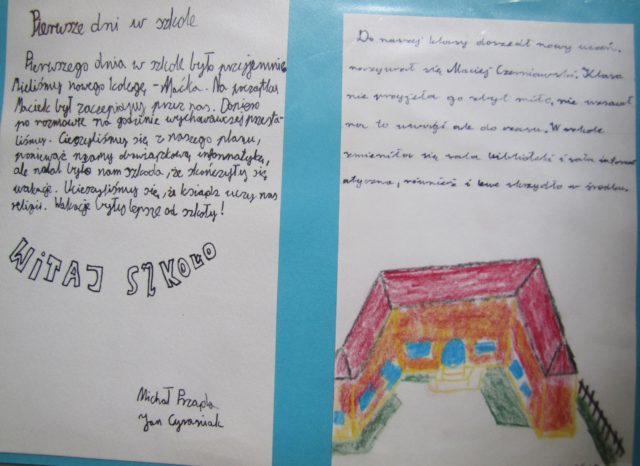 Pierwsze dni w szkole
Pierwszego dnia w szkole było przyjemnie.
Mieliśmy nowego kolegę - Maćka. Na początku
Maciek był zaczepiany przez nas. Dopiero
po rozmowie na godzinie wychowawczej przesta-
liśmy. Cieszyliśmy się z naszego planu,
ponieważ mamy obowiązkową informatykę,
ale nadal było nam szkoda, że skończyły się
wakacje. Ucieszyliśmy się, że ksiądz uczy nas
religii. Wakacje byłyby lepsze od szkoły!
WITAJ SZKOŁO
Michał
Jan Cyraniak
Do naszej klasy doszedł nowy uczeń,
nazywał się Maciej Czerniawski. Klasa
nie przyjęła go zbyt miło, nie zwracał
na to uwagi ale do czasu. W szkole
zmieniła się sala biblioteki i sala inform
atyczna, również i lewe skrzydło w środku.